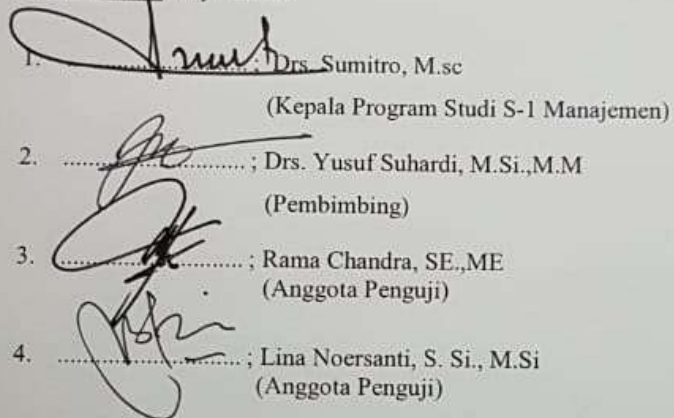 1. ..................... ; Drs. Sumitro, M.sc
(Kepala Program Studi S-1 Manajemen)
2. ........................... ; Drs. Yusuf Suhardi, M.Si.,M.M
(Pembimbing)
3. ........................... ; Rama Chandra, SE.,ME
(Anggota Penguji)
4. ........................... ; Lina Noersanti, S. Si., M.Si
(Anggota Penguji)